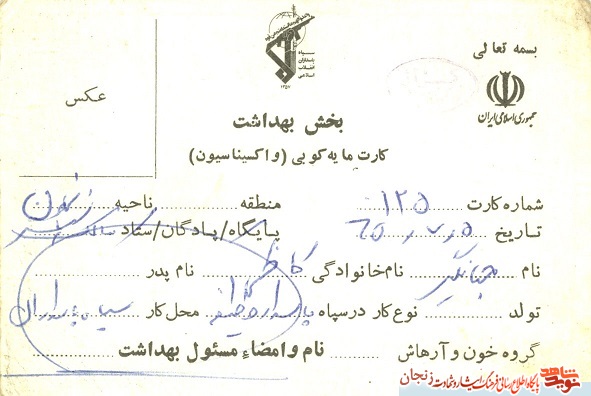 بسمه تعالی
جمهوری اسلامی ایران
سپاه
پاسداران
انقلاب
اسلامی
۱۳۵۷
عکس
بخش بهداشت
کارت مایه کوبی (واکسیناسیون)
شماره کارت ۱۲۵ منطقه ناحیه
تاریخ ۶۵٫۷٫۵ پایگاه/پادگان/ستاد
نام جهانگیر نام خانوادگی کاظمی نام پدر
تولد نوع کار در سپاه پاسدار محل کار سپاه پاسداران
گروه خون و آرهاش نام و امضاء مسئول بهداشت
نوید شاهد پایگاه اطلاع رسانی فرهنگ ایثار و شهادت زنجان